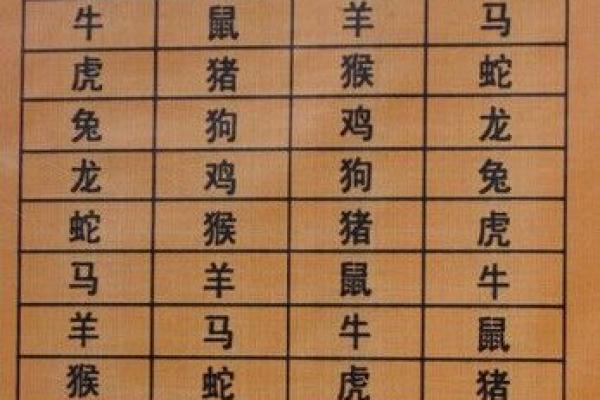 牛 鼠 羊 马
虎 猪 猴 蛇
兔 狗 鸡 龙
龙 鸡 狗 兔
蛇 猴 猪 虎
马 羊 鼠 牛
羊 马 牛 鼠
猴 蛇 虎 猪